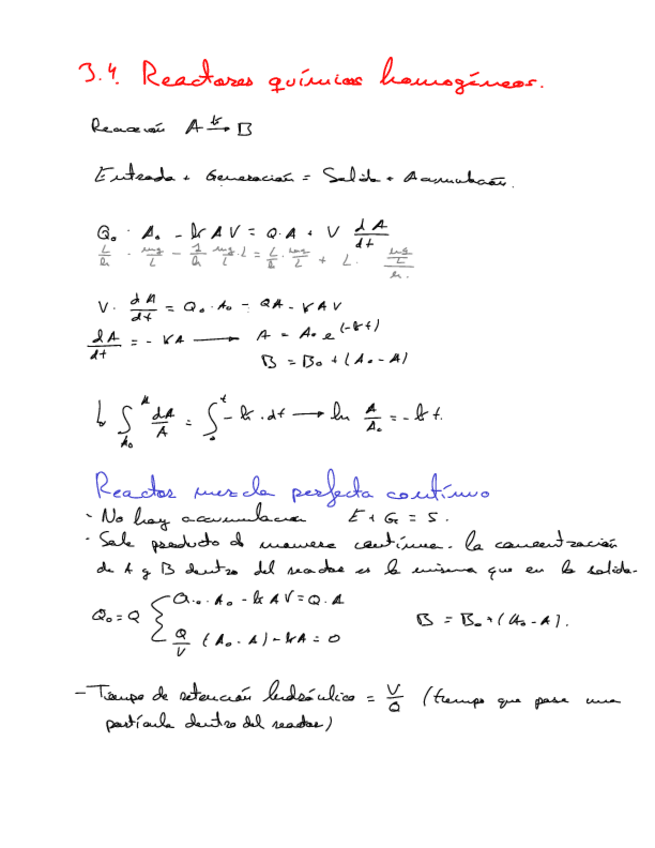 3.4. Reactores químicos homogéneos.
Reacción A k→ B
Entrada + Generación = Salida + Acumulación.
Q₀ · A₀ - k A V = Q · A + V dA/dt
L/h · mg/L - 1/h mg/L · L = L/h · mg/L + L · (mg/L)/h.
V · dA/dt = Q₀ · A₀ - QA - k A V
dA/dt = - kA → A = A₀ e^(-kt)
B = B₀ + (A₀ - A)
↳ ∫_{A₀}^{A} dA/A = ∫_{0}^{t} - k · dt → ln A/A₀ = - k t.
Reactor mezcla perfecta contínuo
· No hay acumulación E + G = S.
· Sale producto d manera contínua. la concentración
de A y B dentro del reactor es la misma que en la salida.
Q₀ = Q { Q₀ · A₀ - k A V = Q · A
Q/V (A₀ - A) - kA = 0 B = B₀ + (A₀ - A).
- Tiempo de retención hidráulico = V/Q (tiempo que pasa una
partícula dentro del reactor)